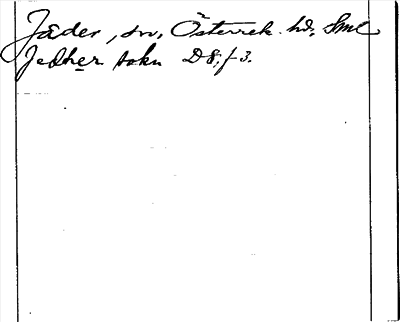 Jäder, sn, Österrek. hd, Sml
Jedher sokn D 8, f 3.